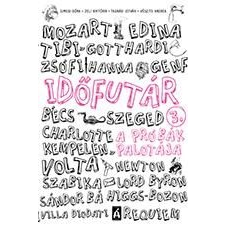 GIMESI DÓRA – JELI VIKTÓRIA – TASNÁDI ISTVÁN – VÉSZITS ANDREA
MOZART EDINA
TIBI GOTTHARDI
ZSÓFI HANNA GENF
IDŐFUTÁR
BÉCS SZEGED 3.
CHARLOTTE A PRÓBÁK
KEMPELEN PALOTÁJA
VOLTA NEWTON
SZABIKA LORD BYRON
SÁNDOR BÁ HIGGS-BOZON
VILLA DIODATI A REQUIEM